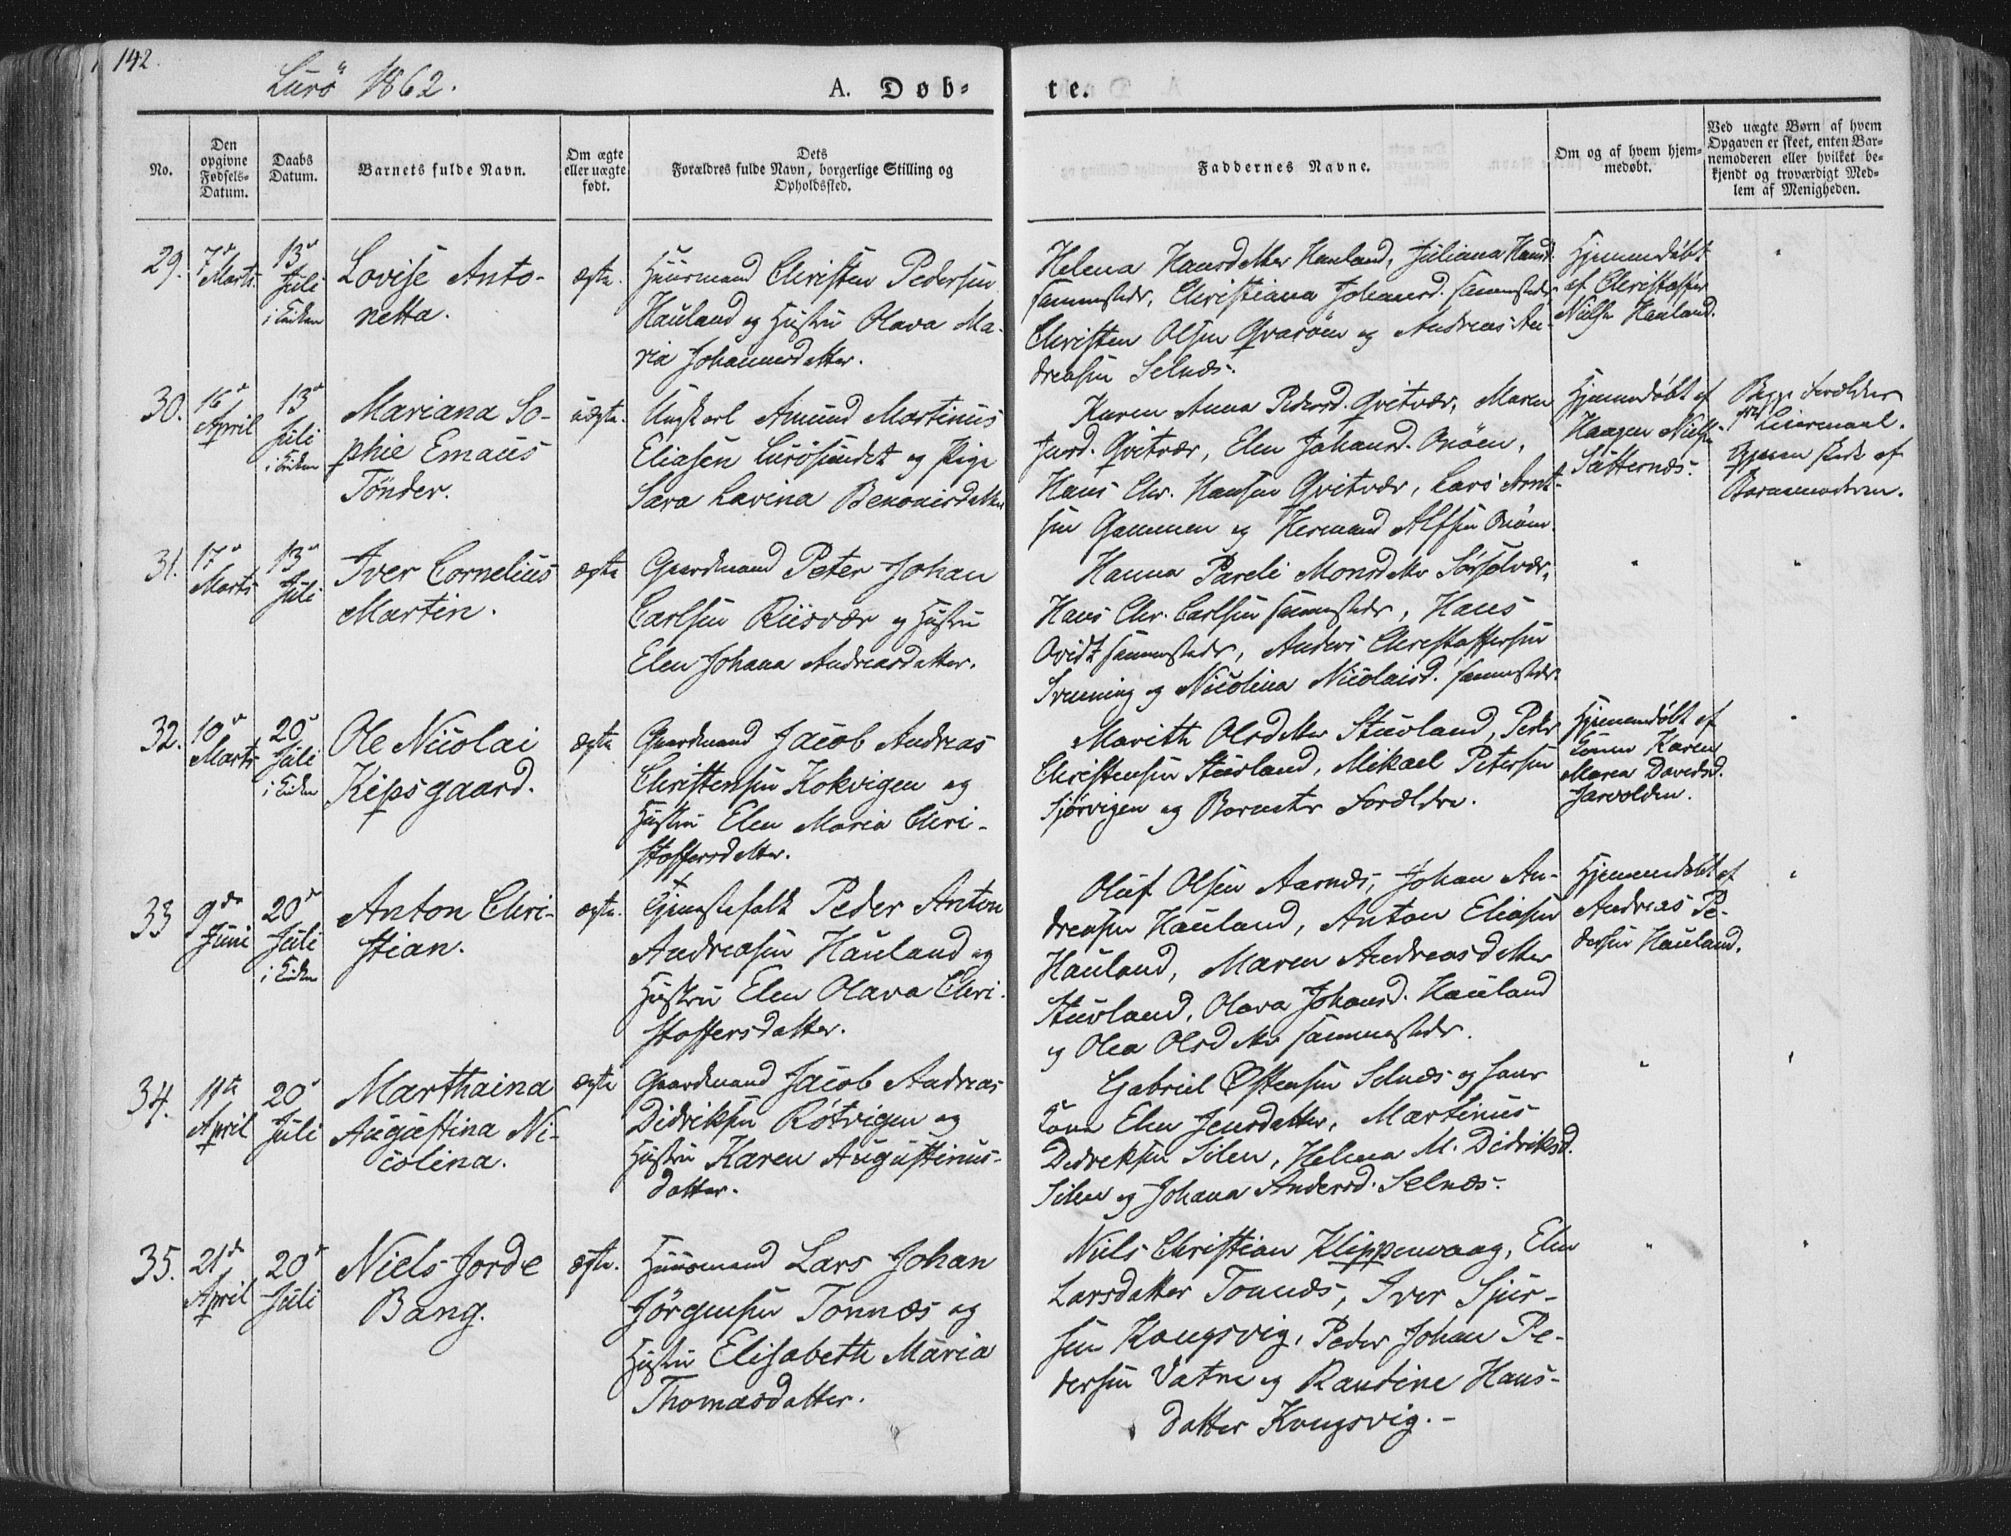 142.
Lurö 1862.
A. Døb-
te.
No.
Den
opgivne
Fødsels-
Datum.
Daabs
Datum.
Barnets fulde Navn.
Om ægte
eller uægte
født.
Dets
Forældres fulde Navn, borgerlige Stilling og
Opholdssted.
Faddernes Navne.
Om og af hvem hjem-
medøbt.
Ved uægte Børn af hvem
Opgaven er skeet, enten Bar-
nemoderen eller hvilket be-
kjendt og troværdigt Med-
lem af Menigheden.
29.
7de
Marts
13de
Juli
i Kirken
Lovise Anto-
netta.
ægte.
Huusmand Christen Pedersen
Hauland og Hustru Olava Ma-
ria Johannesdatter.
Helena Hansdatter Hauland, Juliana Hansd.
sammesteds, Christiana Johansd. sammesteds
Christen Olsen Qvarøen og Andreas An-
dreasen Selnæs.
Hjemmedøbt
af Christoffer
Nielsen Hauland.
30.
16de
April
13de
Juli
i Kirken
Mariana So-
phie Emaus
Tönder.
uægte.
Ungkarl Amund Martinus
Eliasen Lurösundet og Pige
Sara Lavina Benonisdatter
Karen Anna Pedersd. Qvitvær, Maren
Qvitvær, Elen Johansd.
Hans Chr. Hansen Qvitvær, Lars Arnt-
sen Gammen og Hermand Alfsen
Hjemmedøbt af
Haagen Nielsen
Sætternæs.
Begge Forældres
1ste Leiermaal.
Opgaven skede af
Barnemoderen.
31.
17de
Marts
13de
Juli
Iver Cornelius
Martin.
ægte
Gaardmand Peter Johan
Carlsen Riisvær og Hustru
Elen Johana Andreasdatter.
Hanna Pareli Monsdatter Sörsolvær,
Hans Chr. Carlsen sammesteds, Hans
Ovidt sammesteds, Anders Christoffersen
Svenning og Nicolina Nicolaisd. sammesteds.
32.
10de
Marts
20de
Juli
i Kirken
Ole Nicolai
Kipsgaard.
ægte
Gaardmand Jacob Andreas
Christensen Kokvigen og
Hustru Elen Maria Chri-
stoffersdatter.
Marith Olsdatter Stuvland, Peder
Christensen Stuvland, Mikael Petersen
Sjörvigen og Barnets Forældre.
Hjemmedøbt af
Konen Karen
Marea Davedsd.
33
9de
Juni
20de
Juli
i Kirken
Anton Chri-
stian.
ægte.
Tjenestefolk Peder Anton
Andreasen Hauland og
Hustru Elen Olava Chri-
stoffersdatter.
Oluf Olsen Aarnæs, Johan An-
dreasen Hauland, Anton Eliasen
Hauland, Maren Andreasdatter
Stuvland, Olava Johansd. Hauland
og Olea Olsdatter sammesteds.
Hjemmedøbt af
Andreas Pe-
dersen Hauland.
34.
11te
April
20de
Juli
Marthaina
Augustina Ni-
colina.
ægte
Gaardmand Jacob Andreas
Didriksen Røtvigen og
Hustru Karen Augustinus-
datter.
Gabriel Østensen Selnæs og hans
Kone Elen Jensdatter, Martinus
Didreksen Silen, Helena M. Didriksd.
Silen og Johana Andersd. Selnæs.
35.
21de
April
20de
Juli
Niels Jorde
Bang.
ægte.
Huusmand Lars Johan
Jörgensen Tonnæs og
Hustru Elisabeth Maria
Thomasdatter.
Niels Christian Klippenvaag, Elen
Larsdatter Tonnæs, Iver Sjur-
sen Kongsvig, Peder Johan Pe-
dersen Vatne og Randine Hans-
datter Kongsvig.-